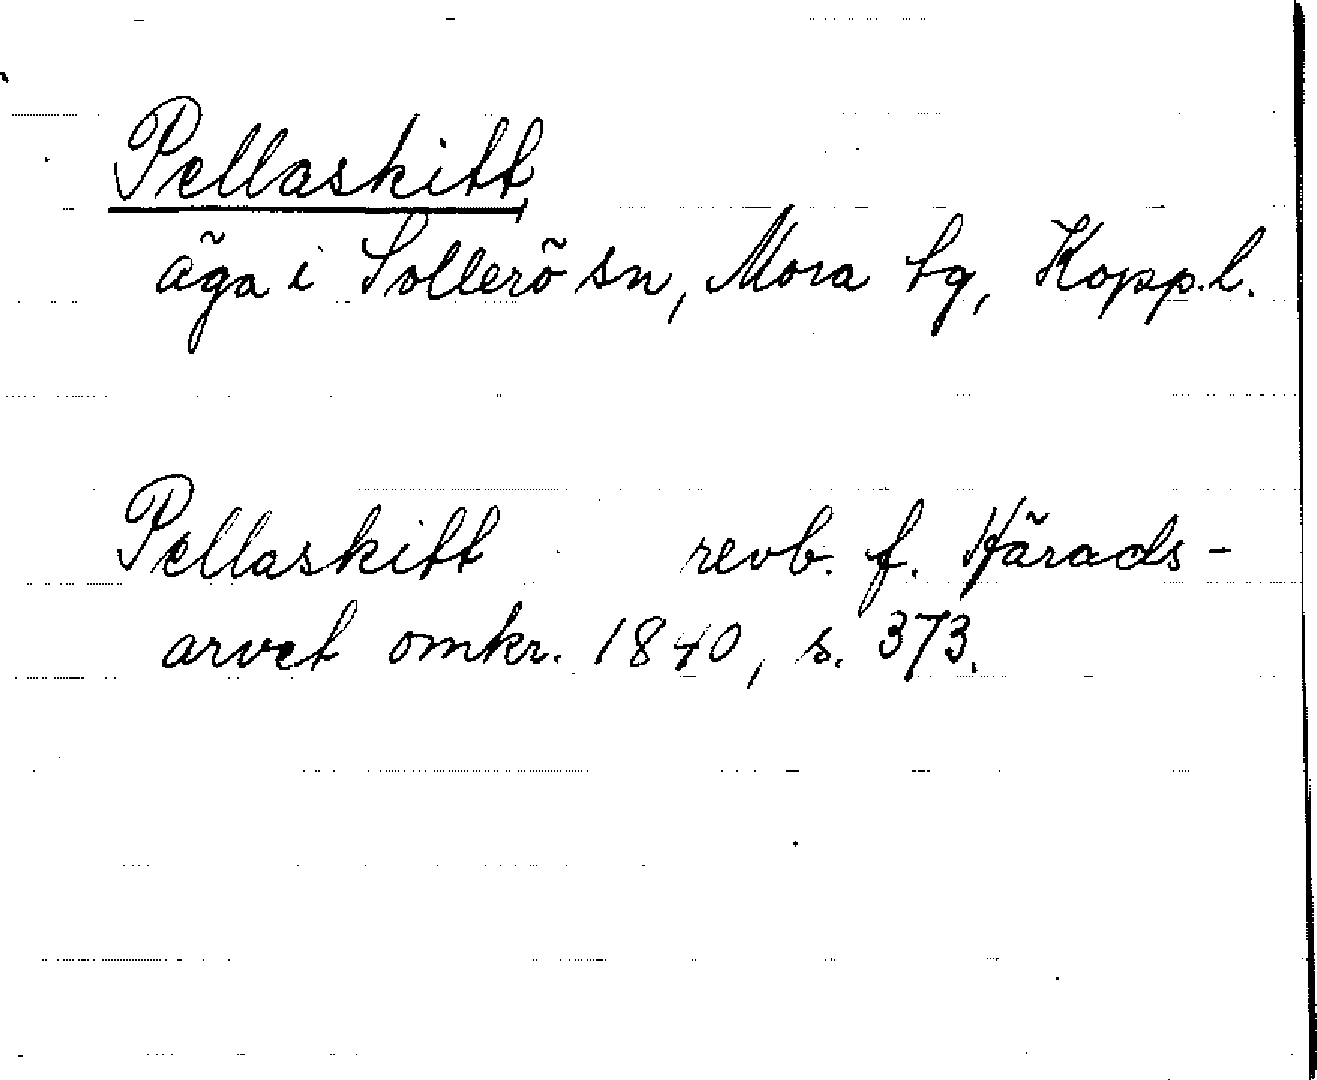 Pellaskitt,
äga i Sollerö sn, Mora tg, Kopp.l.
Pellaskitt revb. f. Härads-
arvet omkr. 1840, s. 373.